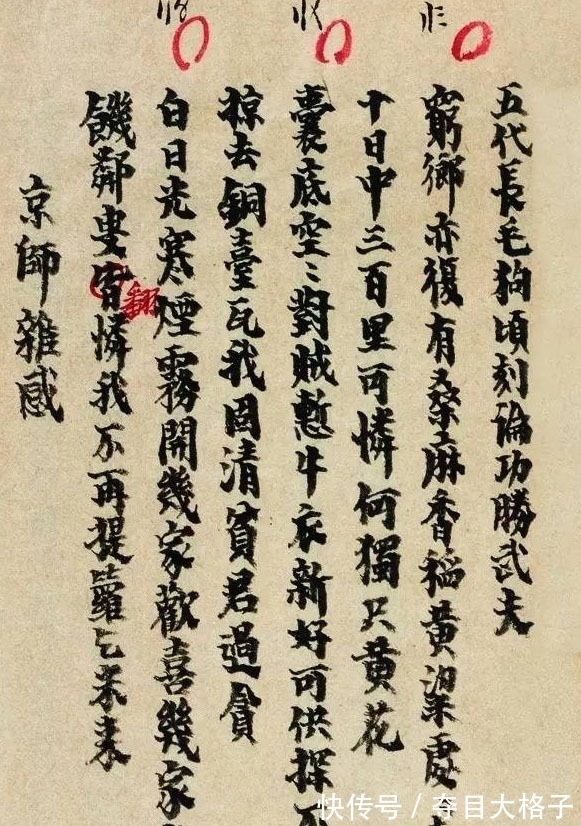 五代長毛狗頃刻論功勝武夫
窮鄉亦復有桑麻香稻黃粱處
十日中三百里可憐何獨只黃花
囊底空〻對賊慙牛衣新好可供探
掠去銅臺瓦我固清貧君過貪
白日光寒煙霧開幾家歡喜幾家
饑鄰叟皆憐我不再提籮乞米來
翻
京師雜感
快传号/夺目大格子